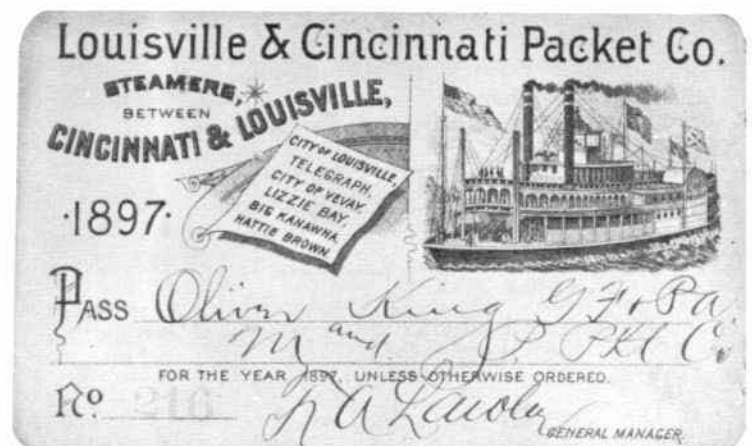 Louisville & Cincinnati Packet Co.
STEAMERS,
BETWEEN
CINCINNATI & LOUISVILLE,
CITY OF LOUISVILLE,
TELEGRAPH,
CITY OF VEVAY,
LIZZIE BAY
BIG KANAWHA
HATTIE BROWN
·1897·
PASS Oliver King G F & P a
M and P. PKt Co
FOR THE YEAR 1897, UNLESS OTHERWISE ORDERED.
No. 216
GENERAL MANAGER